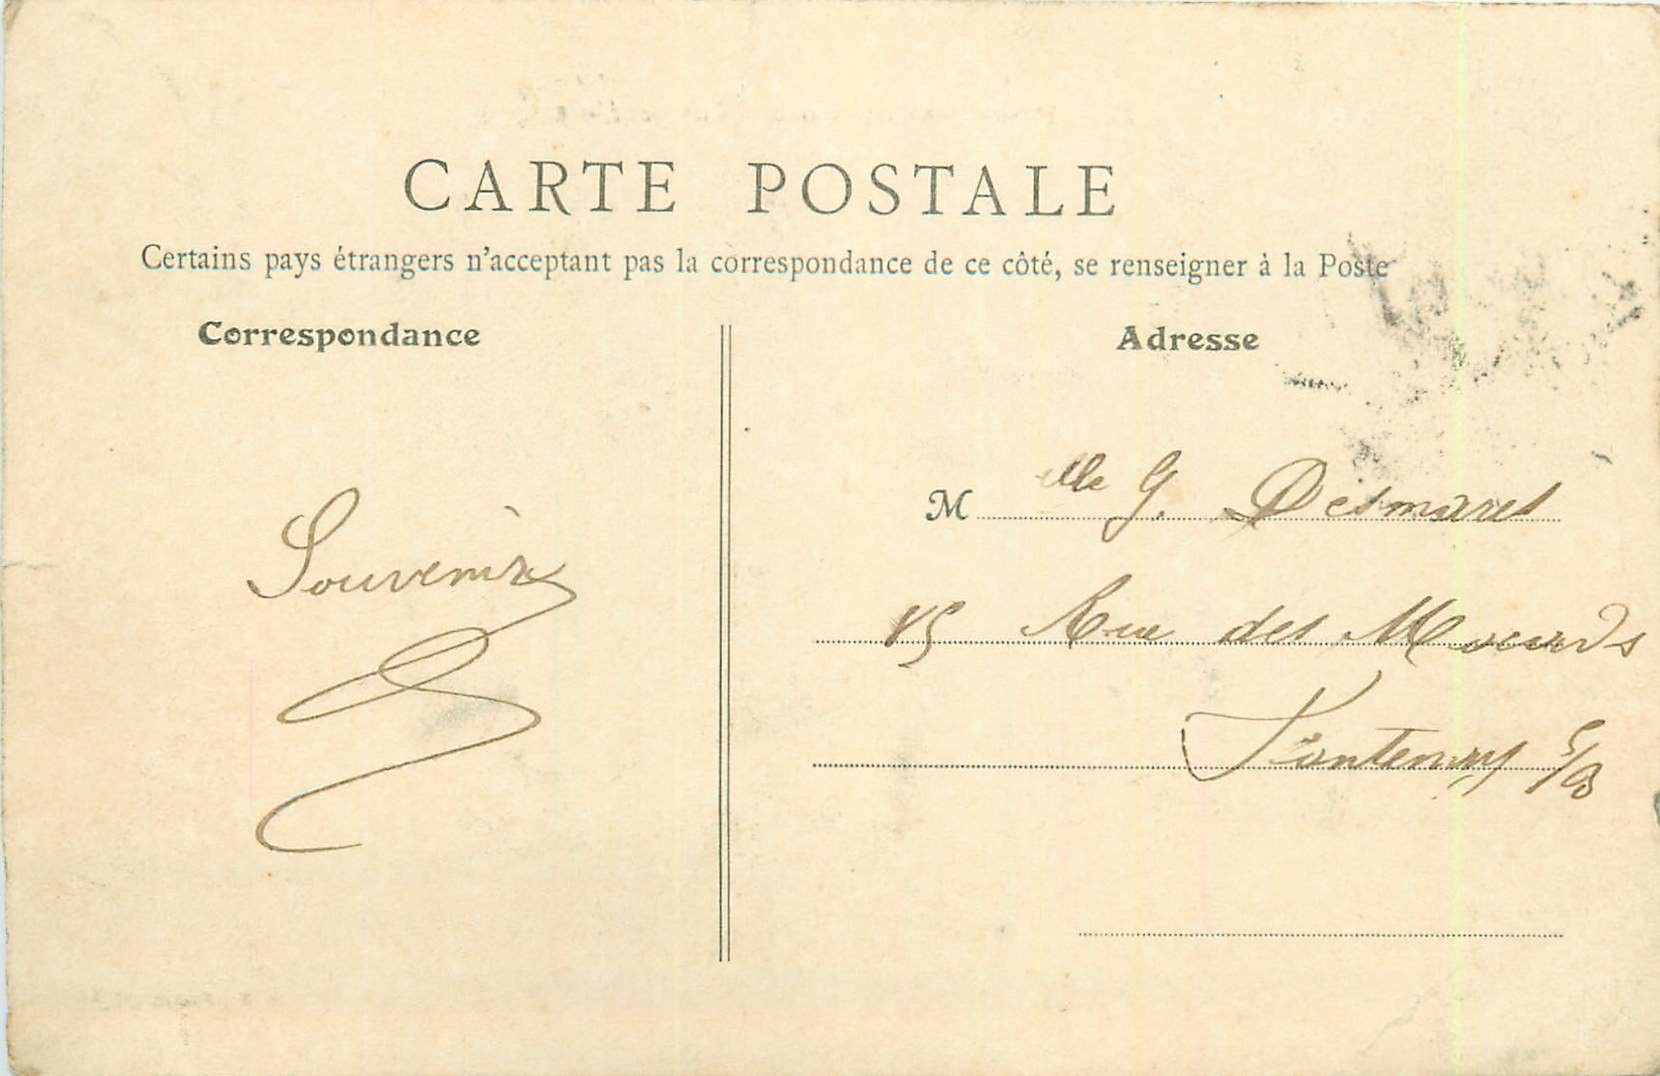 CARTE POSTALE
Certains pays étrangers n'acceptant pas la correspondance de ce côté, se renseigner à la Poste
Correspondance
Adresse
Souvenir
Mlle G. Desmaret
Rue des
Fontenay S/B